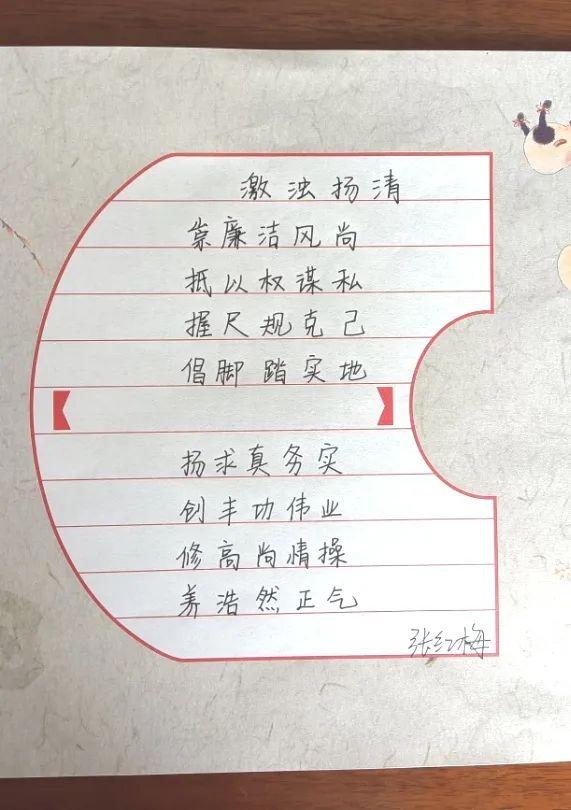 激浊扬清
崇廉洁风尚
抵以权谋私
握尺规克己
倡脚踏实地
扬求真务实
创丰功伟业
修高尚情操
养浩然正气
张红梅